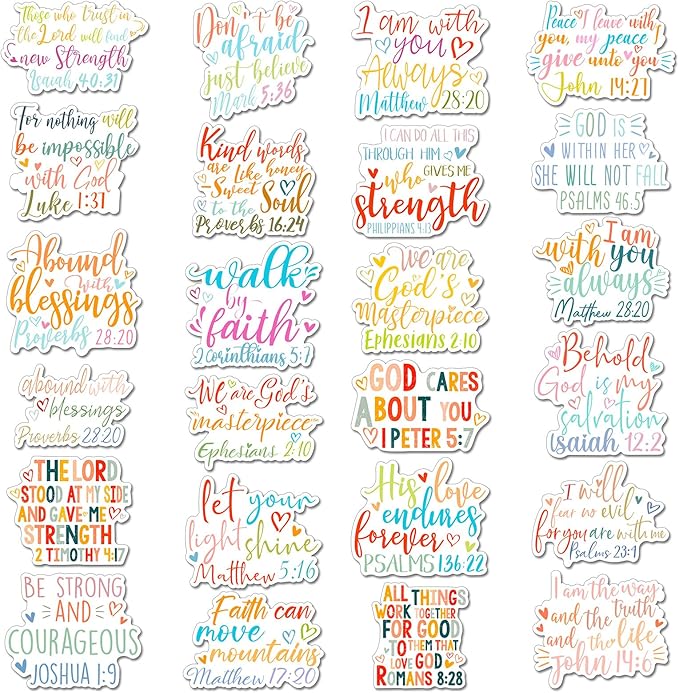 Those who trust in
the Lord will find
new Strength
Isaiah 40:31
Don't be
afraid
just believe
Mark 5:36
I am with
you
Always
Matthew 28:20
Peace I leave with
you, my peace I
give unto you
John 14:27
For nothing will
be impossible
with God
Luke 1:37
Kind words
are like honey
-Sweet
to the Soul
Proverbs 16:24
I CAN DO ALL THIS
THROUGH HIM
who GIVES ME
strength
PHILIPPIANS 4:13
GOD IS
WITHIN HER
SHE WILL NOT FALL
PSALMS 46:5
Abound
with
blessings
Proverbs 28:20
walk
by
faith
2 Corinthians 5:7
We are
God's
Masterpiece
Ephesians 2:10
I am
with you
always
Matthew 28:20
abound with
blessings
Proverbs 28:20
We are God's
masterpiece
Ephesians 2:10
GOD CARES
ABOUT YOU
1 PETER 5:7
Behold
God is my
salvation
Isaiah 12:2
THE LORD
STOOD AT MY SIDE
AND GAVE ME
STRENGTH
2 TIMOTHY 4:17
let your
light shine
Matthew 5:16
His love
endures
forever
PSALMS 136:22
I will
fear no evil
for you are with me
Psalms 23:4
BE STRONG
AND
COURAGEOUS
JOSHUA 1:9
Faith can
move
mountains
Matthew 17:20
ALL THINGS
WORK TOGETHER
FOR GOOD
TO THEM THAT
LOVE GOD
ROMANS 8:28
I am the way
and the truth
and the life
John 14:6